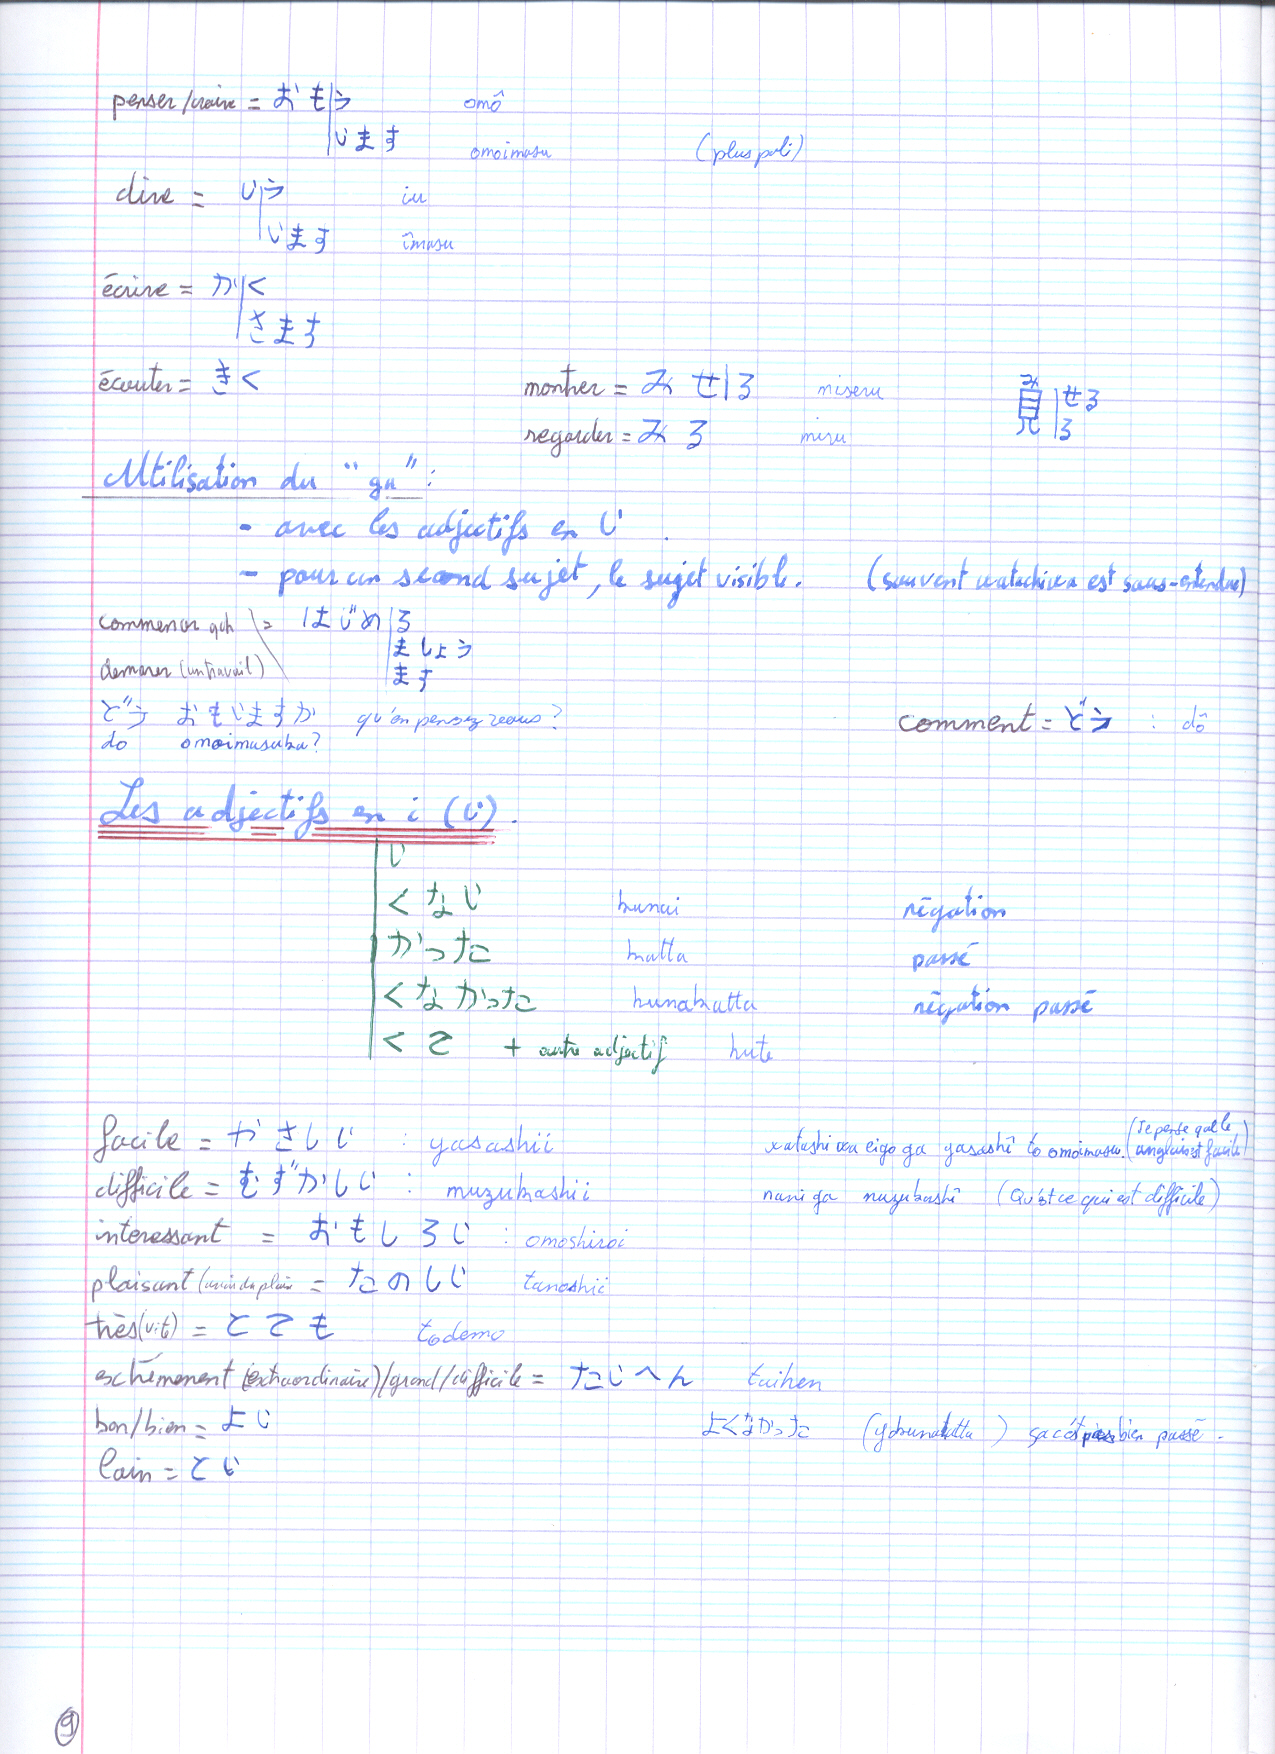 penser/croire = おも|う omô
|います omoimasu (plus poli)
dire = い|う iu
|います îmasu
écrire = か|く
|きます
écouter = きく montrer = みせ|る miseru 見|せる
regarder = みる miru み |る
Utilisation du "ga" :
- avec les adjectifs en い.
- pour un second sujet, le sujet visible. (souvent watashiwa est sous-entendu)
commencer qqch = はじめ|る
|ましょう
demarer (un travail) |ます
どう おもいますか qu'en pensez vous ? comment = どう : dô
do omoimasuka ?
Les adjectifs en i (い).
い
くない kunai négation
かった katta passé
くなかった kunakatta négation passé
くて + autre adjectif kute
facile = やさしい : yasashii watashi wa eigo ga yasashî to omoimasu. (Je pense que le anglais est facile)
difficile = むずかしい : muzukashii nani ga muzukashî (Qu'est ce qui est difficile)
interessant = おもしろい : omoshiroi
plaisant = たのしい tanoshii
très (vite) = とても todemo
(extraordinaire)/grand/difficile = たいへん taihen
bon/bien = よい よくなかった (yokunakatta) pas bien passé.
loin = とい
9